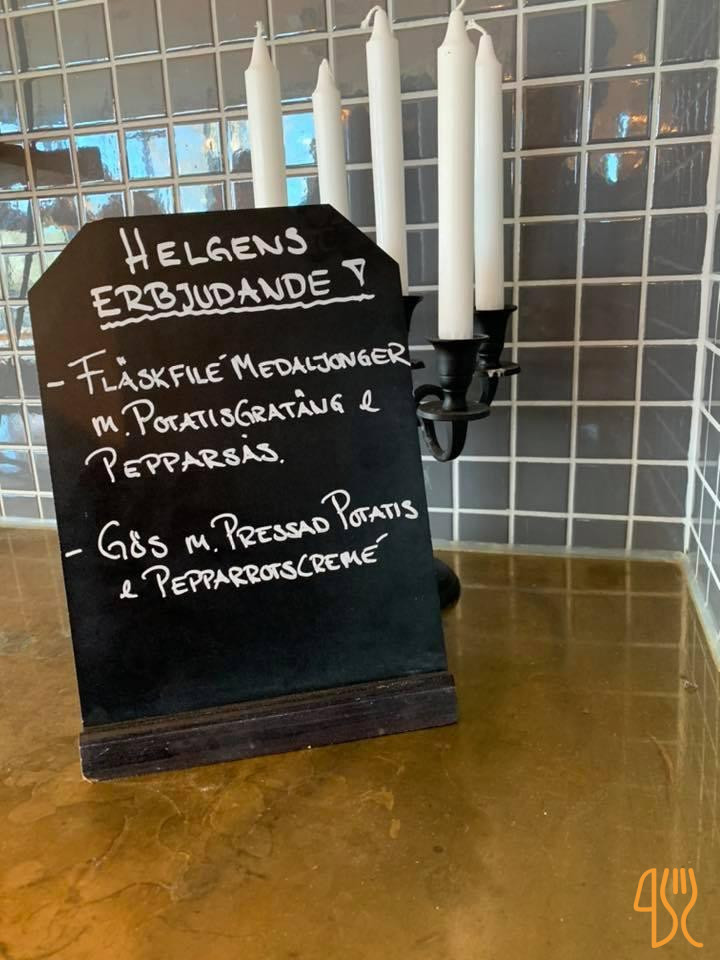 HELGENS
ERBJUDANDE!
- FLÄSKFILÉ MEDALJONGER
M. POTATISGRATÄNG &
PEPPARSÅS.
- GÖS M. PRESSAD POTATIS
& PEPPARROTSCREMÉ